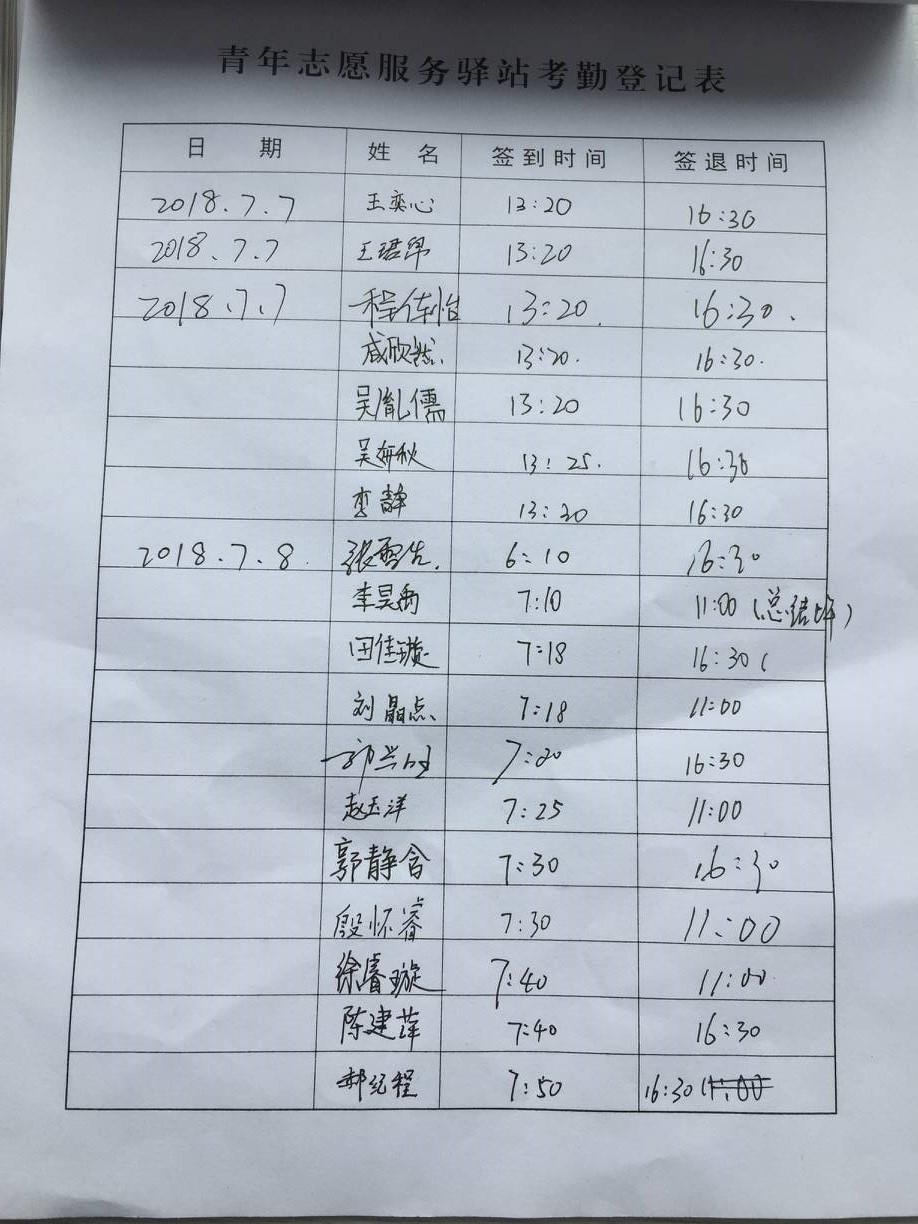 青年志愿服务驿站考勤登记表
日 期 姓 名 签到时间 签退时间
2018.7.7 王奕心 13:20 16:30
2018.7.7 王珺 13:20 16:30
2018.7.7 程佳怡 13:20. 16:30.
欣然. 13:20. 16:30.
吴胤儒 13:20 16:30
吴妍秋 13:25. 16:30
栾静 13:20 16:30
2018.7.8. 张雪 6:10 16:30
李昊禹 7:10 11:00 (总结 )
田佳璇 7:18 16:30 (
刘晶点 7:18 11:00
7:20 16:30
赵玉洋 7:25 11:00
郭静含 7:30 16:30
殷怀睿 7:30 11:00
徐睿璇 7:40 11:00
陈建萍 7:40 16:30
郝纪程 7:50 16:30 (11:00